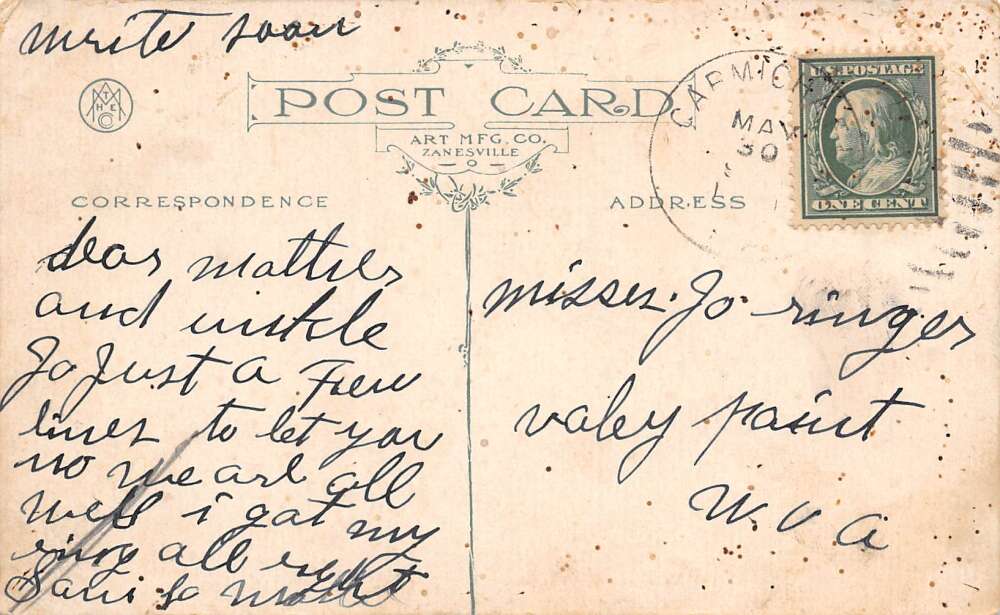 write soon
THE
AM
C
POST CARD
ART MFG. CO.
ZANESVILLE
O
CARMICHA
MAY
30
U.S. POSTAGE
ONE CENT
CORRESPONDENCE
ADDRESS
dear mother
and unkle
Jo Just a Few
lines to let you
no we are all
well i got my
ring all right
misses. Jo ringer
valey point
W. V a